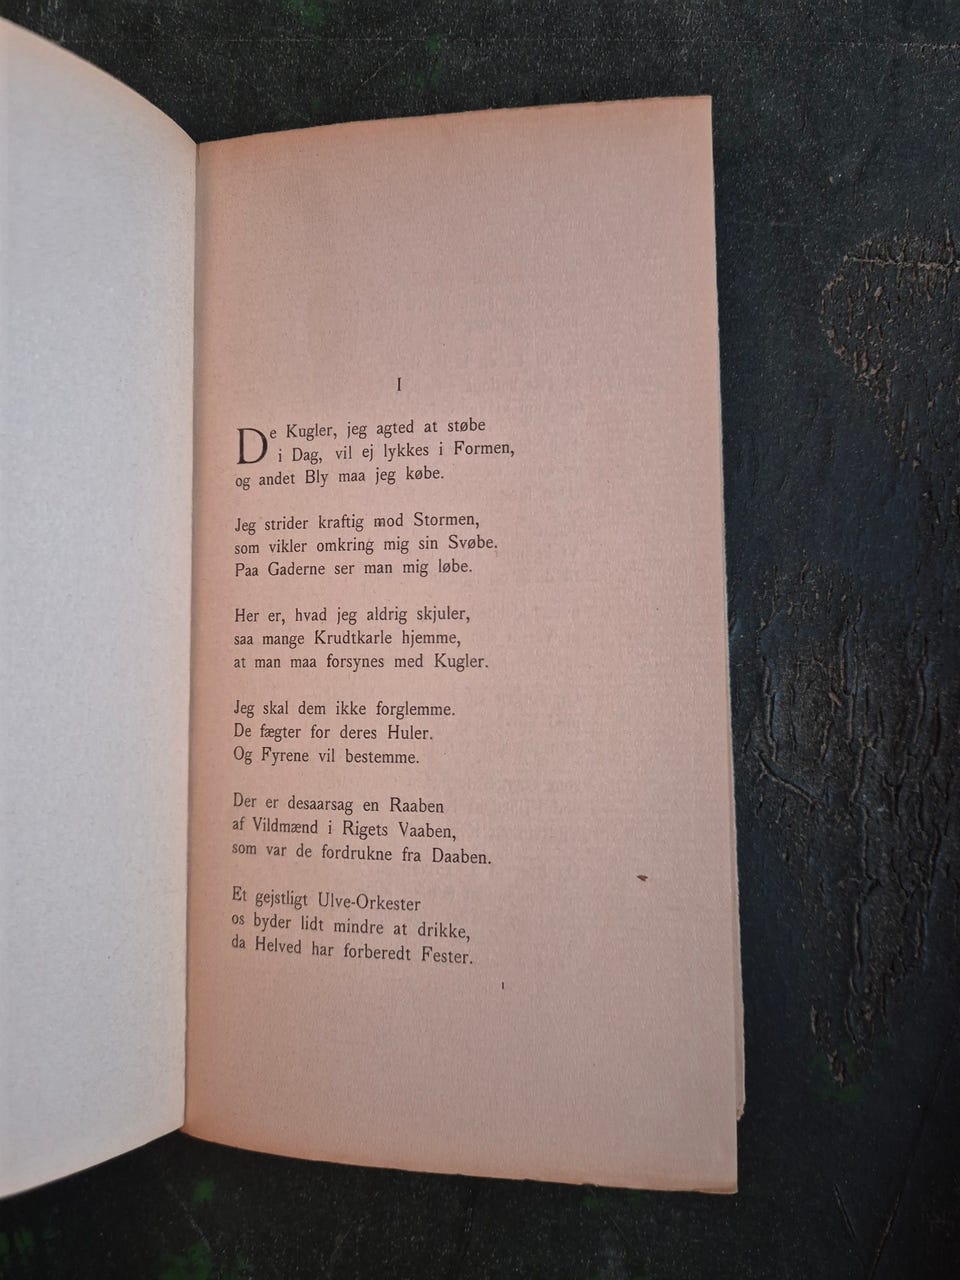 I
De Kugler, jeg agted at støbe
i Dag, vil ej lykkes i Formen,
og andet Bly maa jeg købe.
Jeg strider kraftig mod Stormen,
som vikler omkring mig sin Svøbe.
Paa Gaderne ser man mig løbe.
Her er, hvad jeg aldrig skjuler,
saa mange Krudtkarle hjemme,
at man maa forsynes med Kugler.
Jeg skal dem ikke forglemme.
De fægter for deres Huler.
Og Fyrene vil bestemme.
Der er desaarsag en Raaben
af Vildmænd i Rigets Vaaben,
som var de fordrukne fra Daaben.
Et gejstligt Ulve-Orkester
os byder lidt mindre at drikke,
da Helved har forberedt Fester.
1